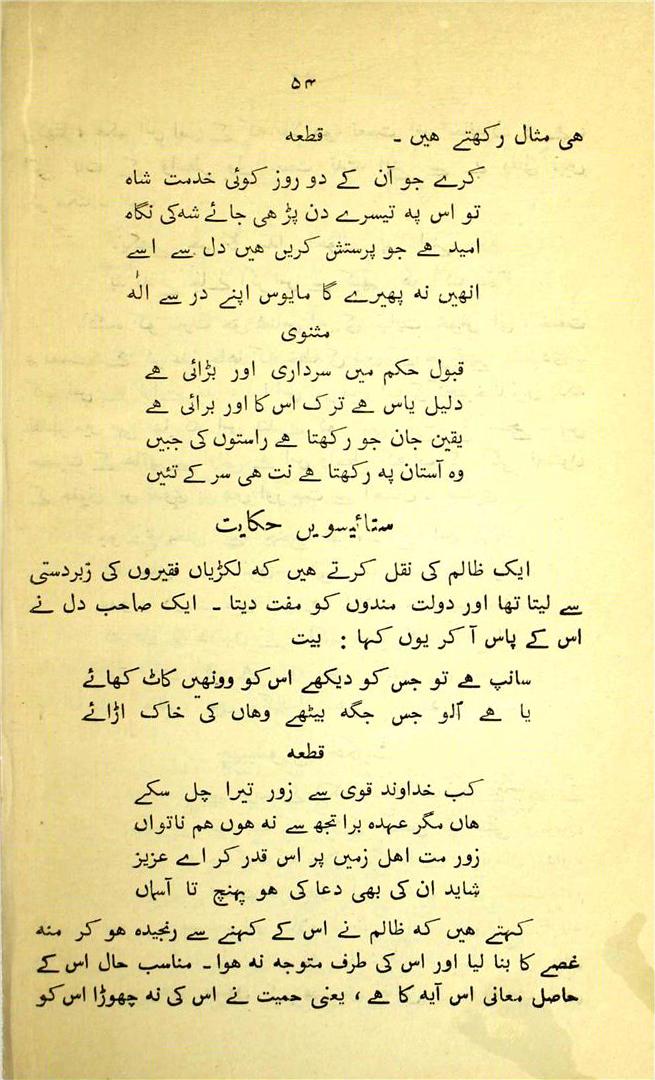 ۵۴
هی مثال رکھتے هیں ۔ قطعه
کرے جو آن کے دو روز کوئی خدمت شاہ
تو اس په تیسرے دن پڑ هی جائے شه کی نگاہ
امید هے جو پرستش کریں هیں دل سے اسے
انھیں نه پھیرے گا مایوس اپنے در سے الٰه
مثنوی
قبول حکم میں سرداری اور بڑائی هے
دلیل یاس هے ترک اس کا اور برائی هے
یقین جان جو رکھتا هے راستوں کی جبیں
وہ آستان په رکھتا هے نت هی سر کے تئیں
ستائیسویں حکایت
ایک ظالم کی نقل کرتے هیں که لکڑیاں فقیروں کی زبردستی
سے لیتا تھا اور دولت مندوں کو مفت دیتا ۔ ایک صاحب دل نے
اس کے پاس آ کر یوں کہا : بیت
سانپ هے تو جس کو دیکھے اس کو وونھیں کاٹ کھائے
یا هے اُلو جس جگه بیٹھے وهاں کی خاک اڑائے
قطعه
کب خداوند قوی سے زور تیرا چل سکے
هاں مگر عہدہ برا تجھ سے نه هوں هم ناتواں
زور مت اهل زمیں پر اس قدر کر اے عزیز
شاید ان کی بھی دعا کی هو پہنچ تا آسماں
کہتے هیں که ظالم نے اس کے کہنے سے رنجیدہ هو کر منه
غصے کا بنا لیا اور اس کی طرف متوجه نه هوا ۔ مناسب حال اس کے
حاصل معانی اس آیه کا هے ، یعنی حمیت نے اس کی نه چھوڑا اس کو